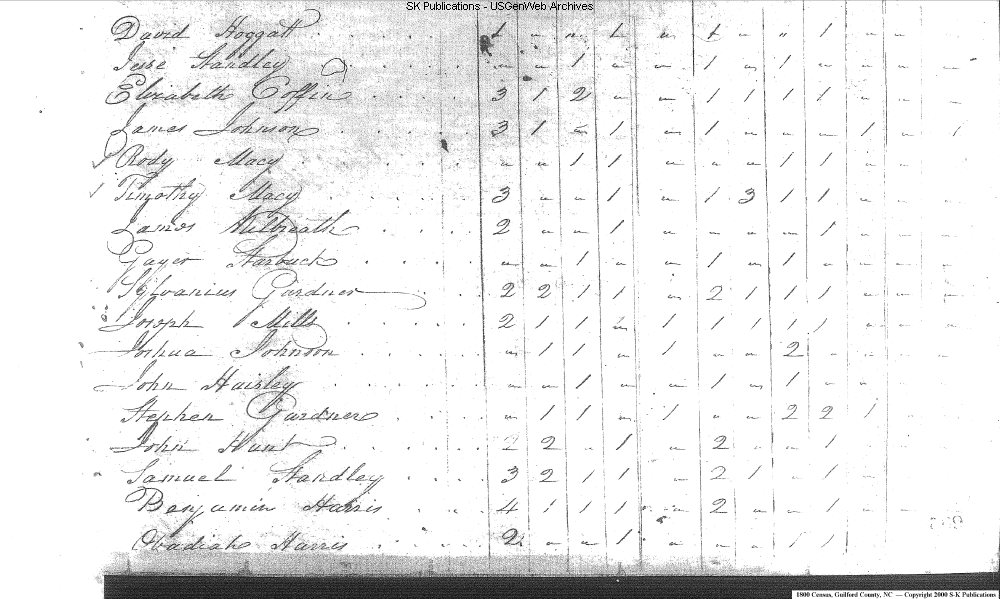 SK Publications - USGenWeb Archives
David Hoggatt 1 " " 1 " 1 " " 1 " "
Jesse Standley " " 1 " " 1 " 1 " " "
Elizabeth Coffin 3 1 2 " " 1 1 1 1 " "
James Johnson 3 1 " 1 " 1 " " " 1 " 1
Rody Macy " " 1 1 " " " 1 1 " "
Timothy Macy 3 " " 1 " 1 3 1 1 " "
James 2 " " 1 " " " " 1 " "
Gayer Starbuck " " 1 " " 1 " 1 " " "
Sylvanius Gardner 2 2 1 1 " 2 1 1 1 " "
Joseph Mills 2 1 1 " 1 1 1 1 1 " "
Joshua Johnson " 1 1 " 1 " " 2 " " "
John Haisley " " 1 " " 1 " 1 " "
Stephen Gardner " 1 1 " 1 " " 2 2 1
John Hunt 2 2 " 1 " 2 " " 1
Samuel Standley 3 2 1 1 " 2 1 " 1 " "
Benjamin Harris 4 1 1 1 " 2 " " 1 " "
Obadiah Harris 2 " " 1 " " " 1 1 " "
1800 Census, Guilford County, NC — Copyright 2000 S-K Publications